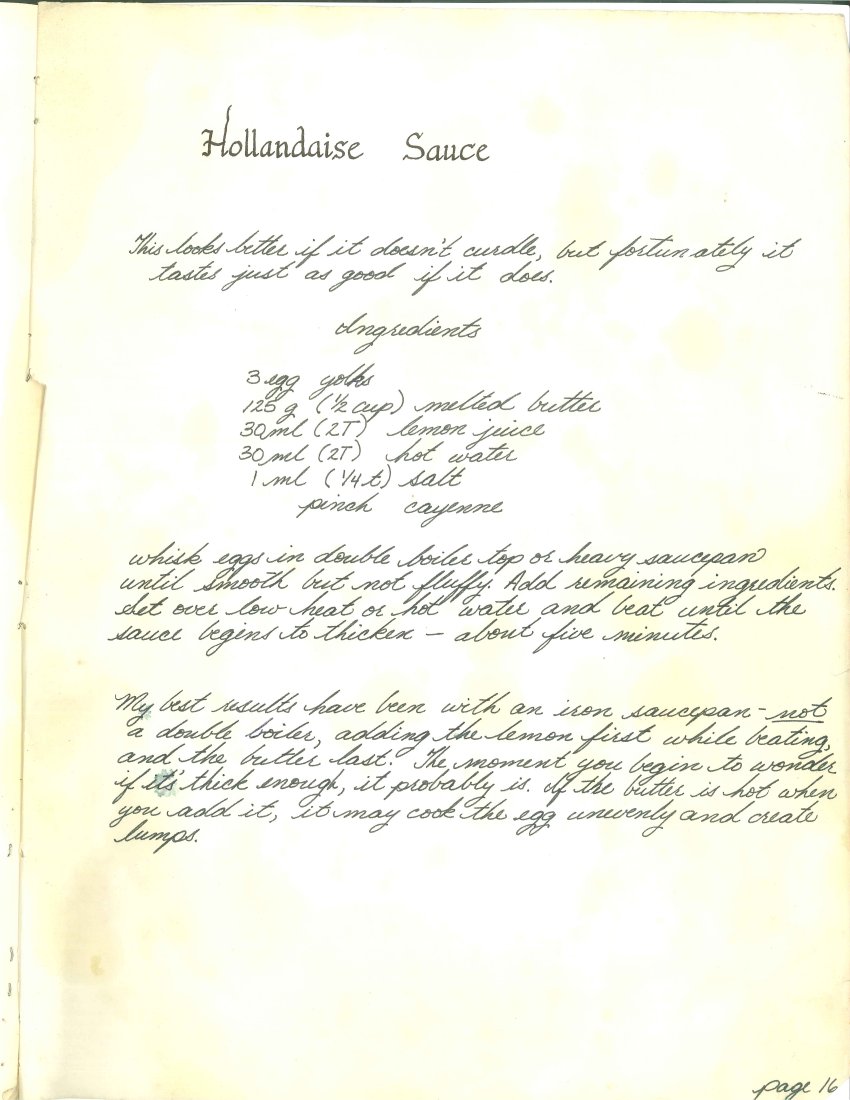 Hollandaise Sauce
This looks better if it doesn't curdle, but fortunately it
tastes just as good if it does.
Ingredients
3 egg yolks
125 g (1/2 cup) melted butter
30 ml (2T) lemon juice
30 ml (2T) hot water
1 ml (1/4 t) salt
pinch cayenne
whisk eggs in double boiler top or heavy saucepan
until smooth but not fluffy. Add remaining ingredients.
Set over low heat or hot water and beat until the
sauce begins to thicken — about five minutes.
My best results have been with an iron saucepan - not
a double boiler, adding the lemon first while beating,
and the butter last. The moment you begin to wonder
if its' thick enough, it probably is. If the butter is hot when
you add it, it may cook the egg unevenly and create
lumps.
page 16